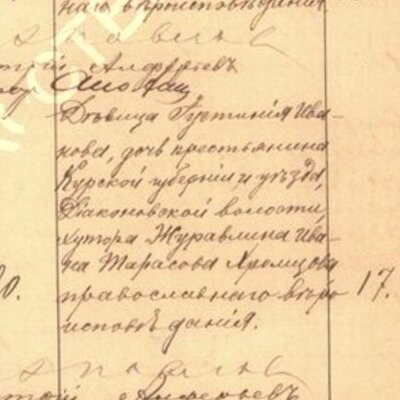 наго вѣроисповѣданія.
Алферьевъ
Дѣвица Густинія Ива-
нова, дочь крестьянина
Курской губерніи и уѣзда,
Дьяконовской волости,
хутора Журавлина Ива-
на Тарасова Хромцова
0. православнаго вѣро 17.
исповѣданія.
Алферьевъ